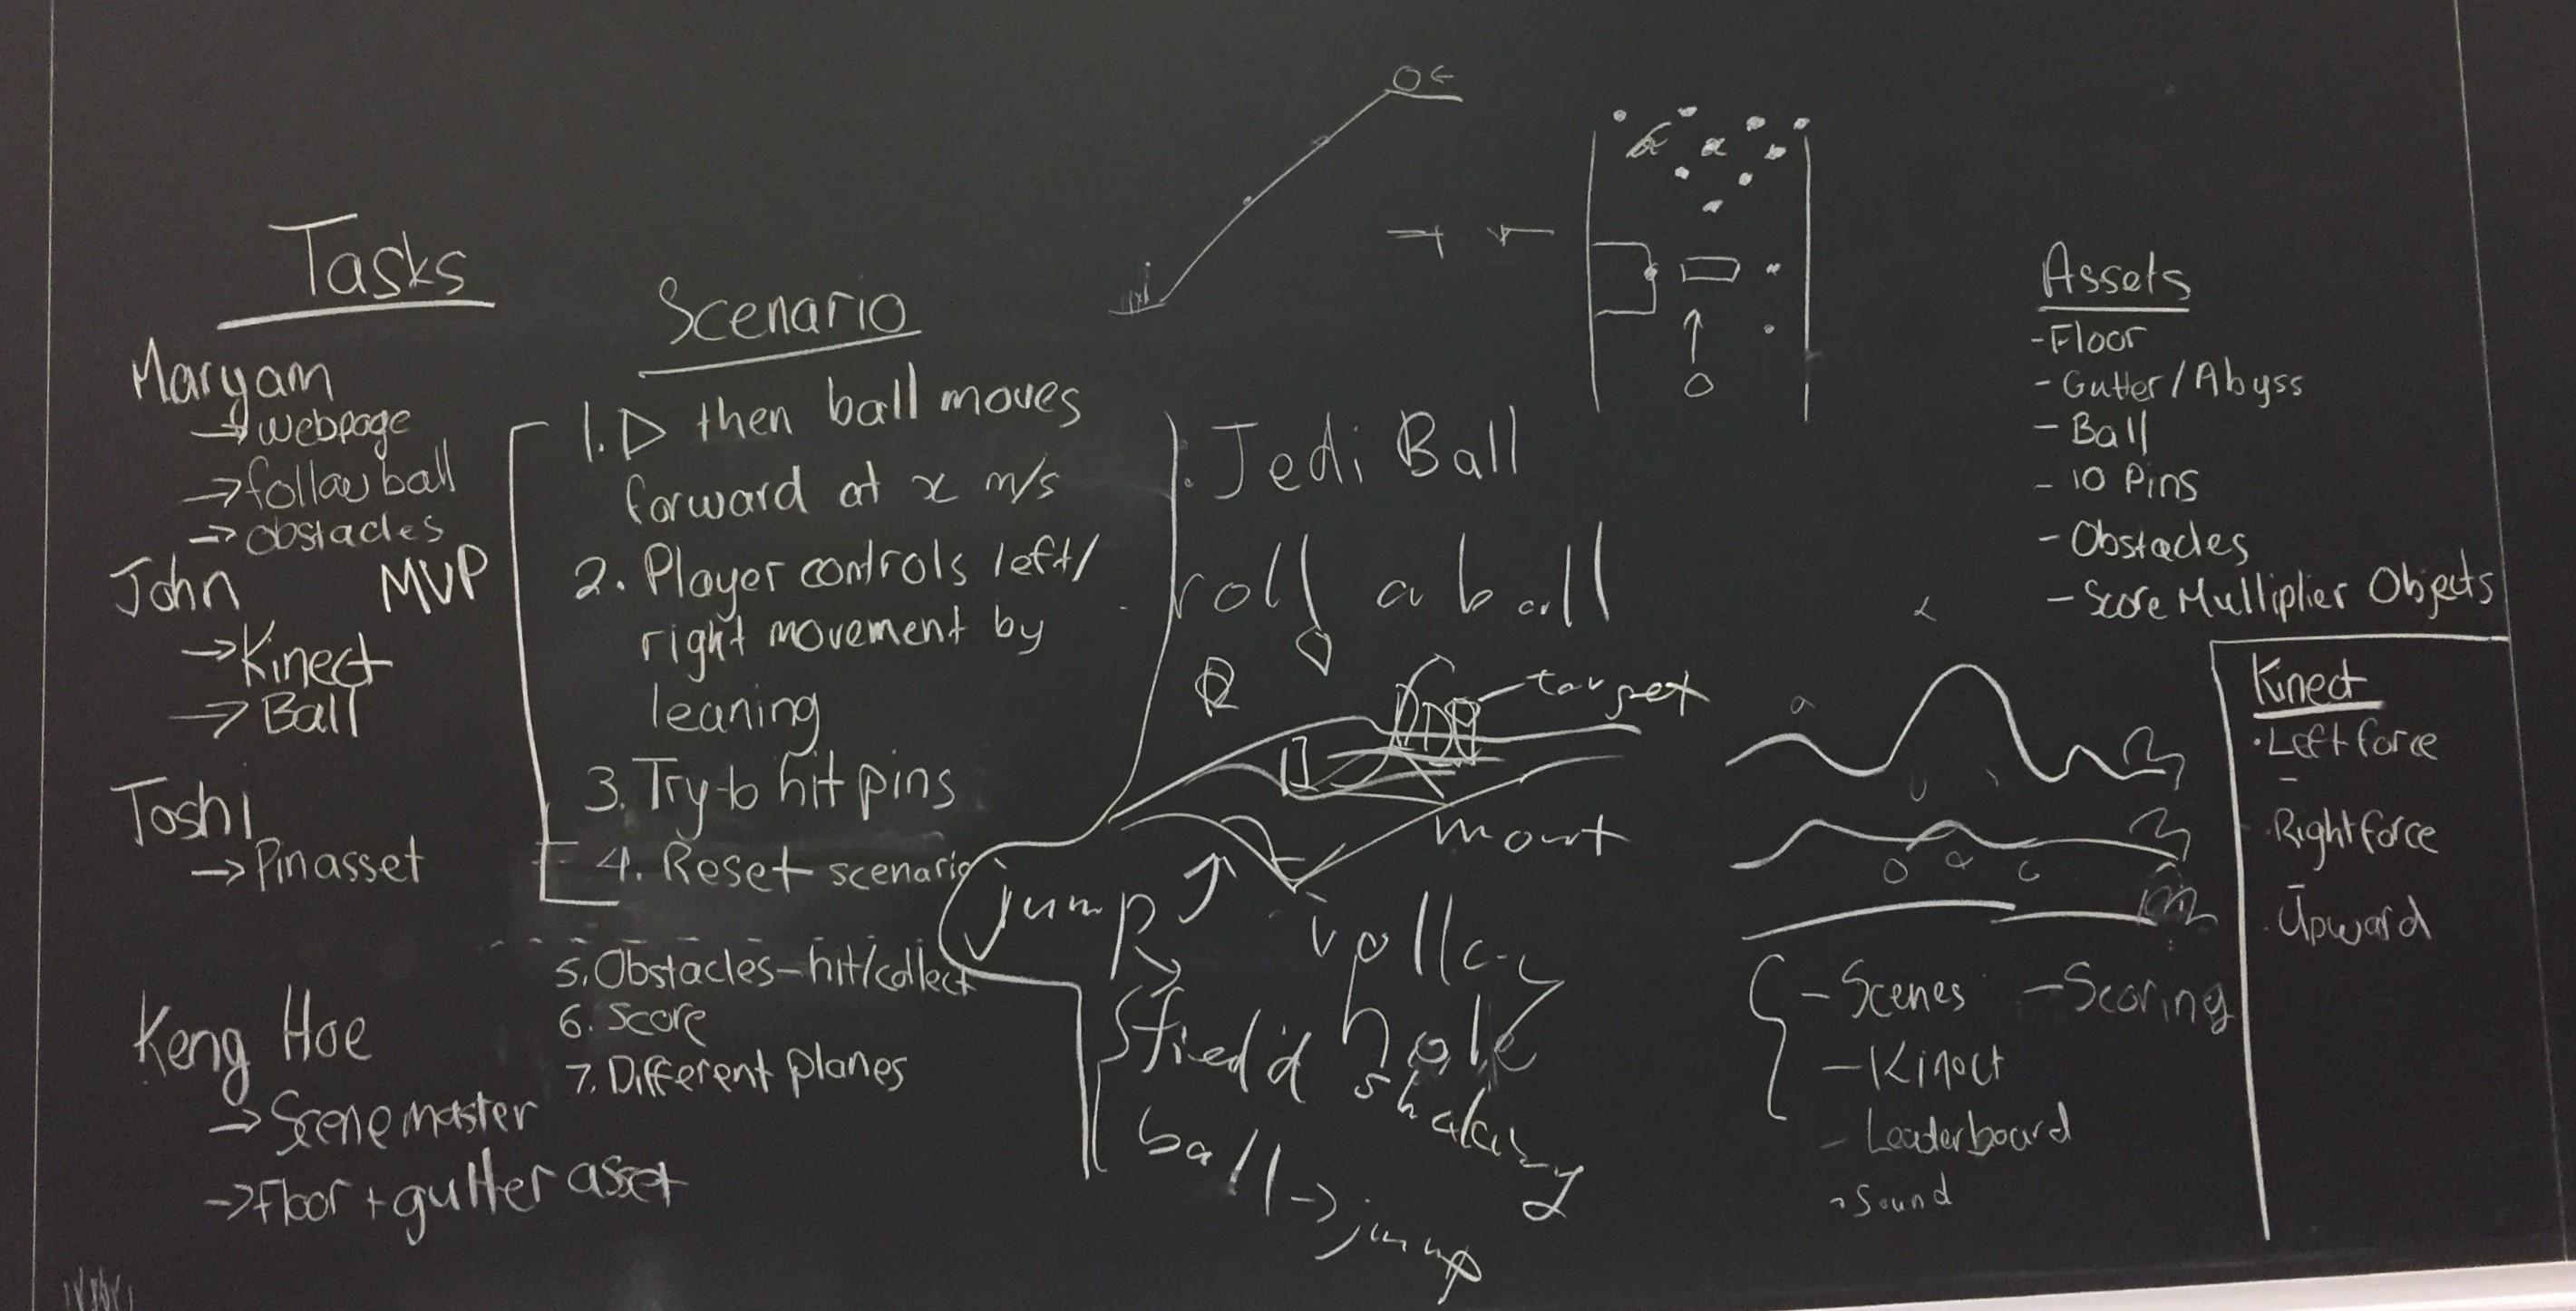 Tasks
Maryam
→ webpage
→ follow ball
→ obstacles
John
→ Kinect
→ Ball
Toshi
→ Pin asset
Keng Hoe
→ Scene master
→ Floor + gutter asset
MVP
Scenario
1. ▷ then ball moves
forward at x m/s
2. Player controls left/
right movement by
leaning
3. Try to hit pins
4. Reset scenario
5. Obstacles - hit/collect
6. Score
7. Different planes
Jedi Ball
roll a ball
target
jump
field hole
shaking
ball → jump
Assets
- Floor
- Gutter / Abyss
- Ball
- 10 Pins
- Obstacles
- Score Multiplier Objects
Kinect
· Left force
· Right force
· Upward
- Scenes - Scoring
- Kinect
- Leaderboard
- Sound